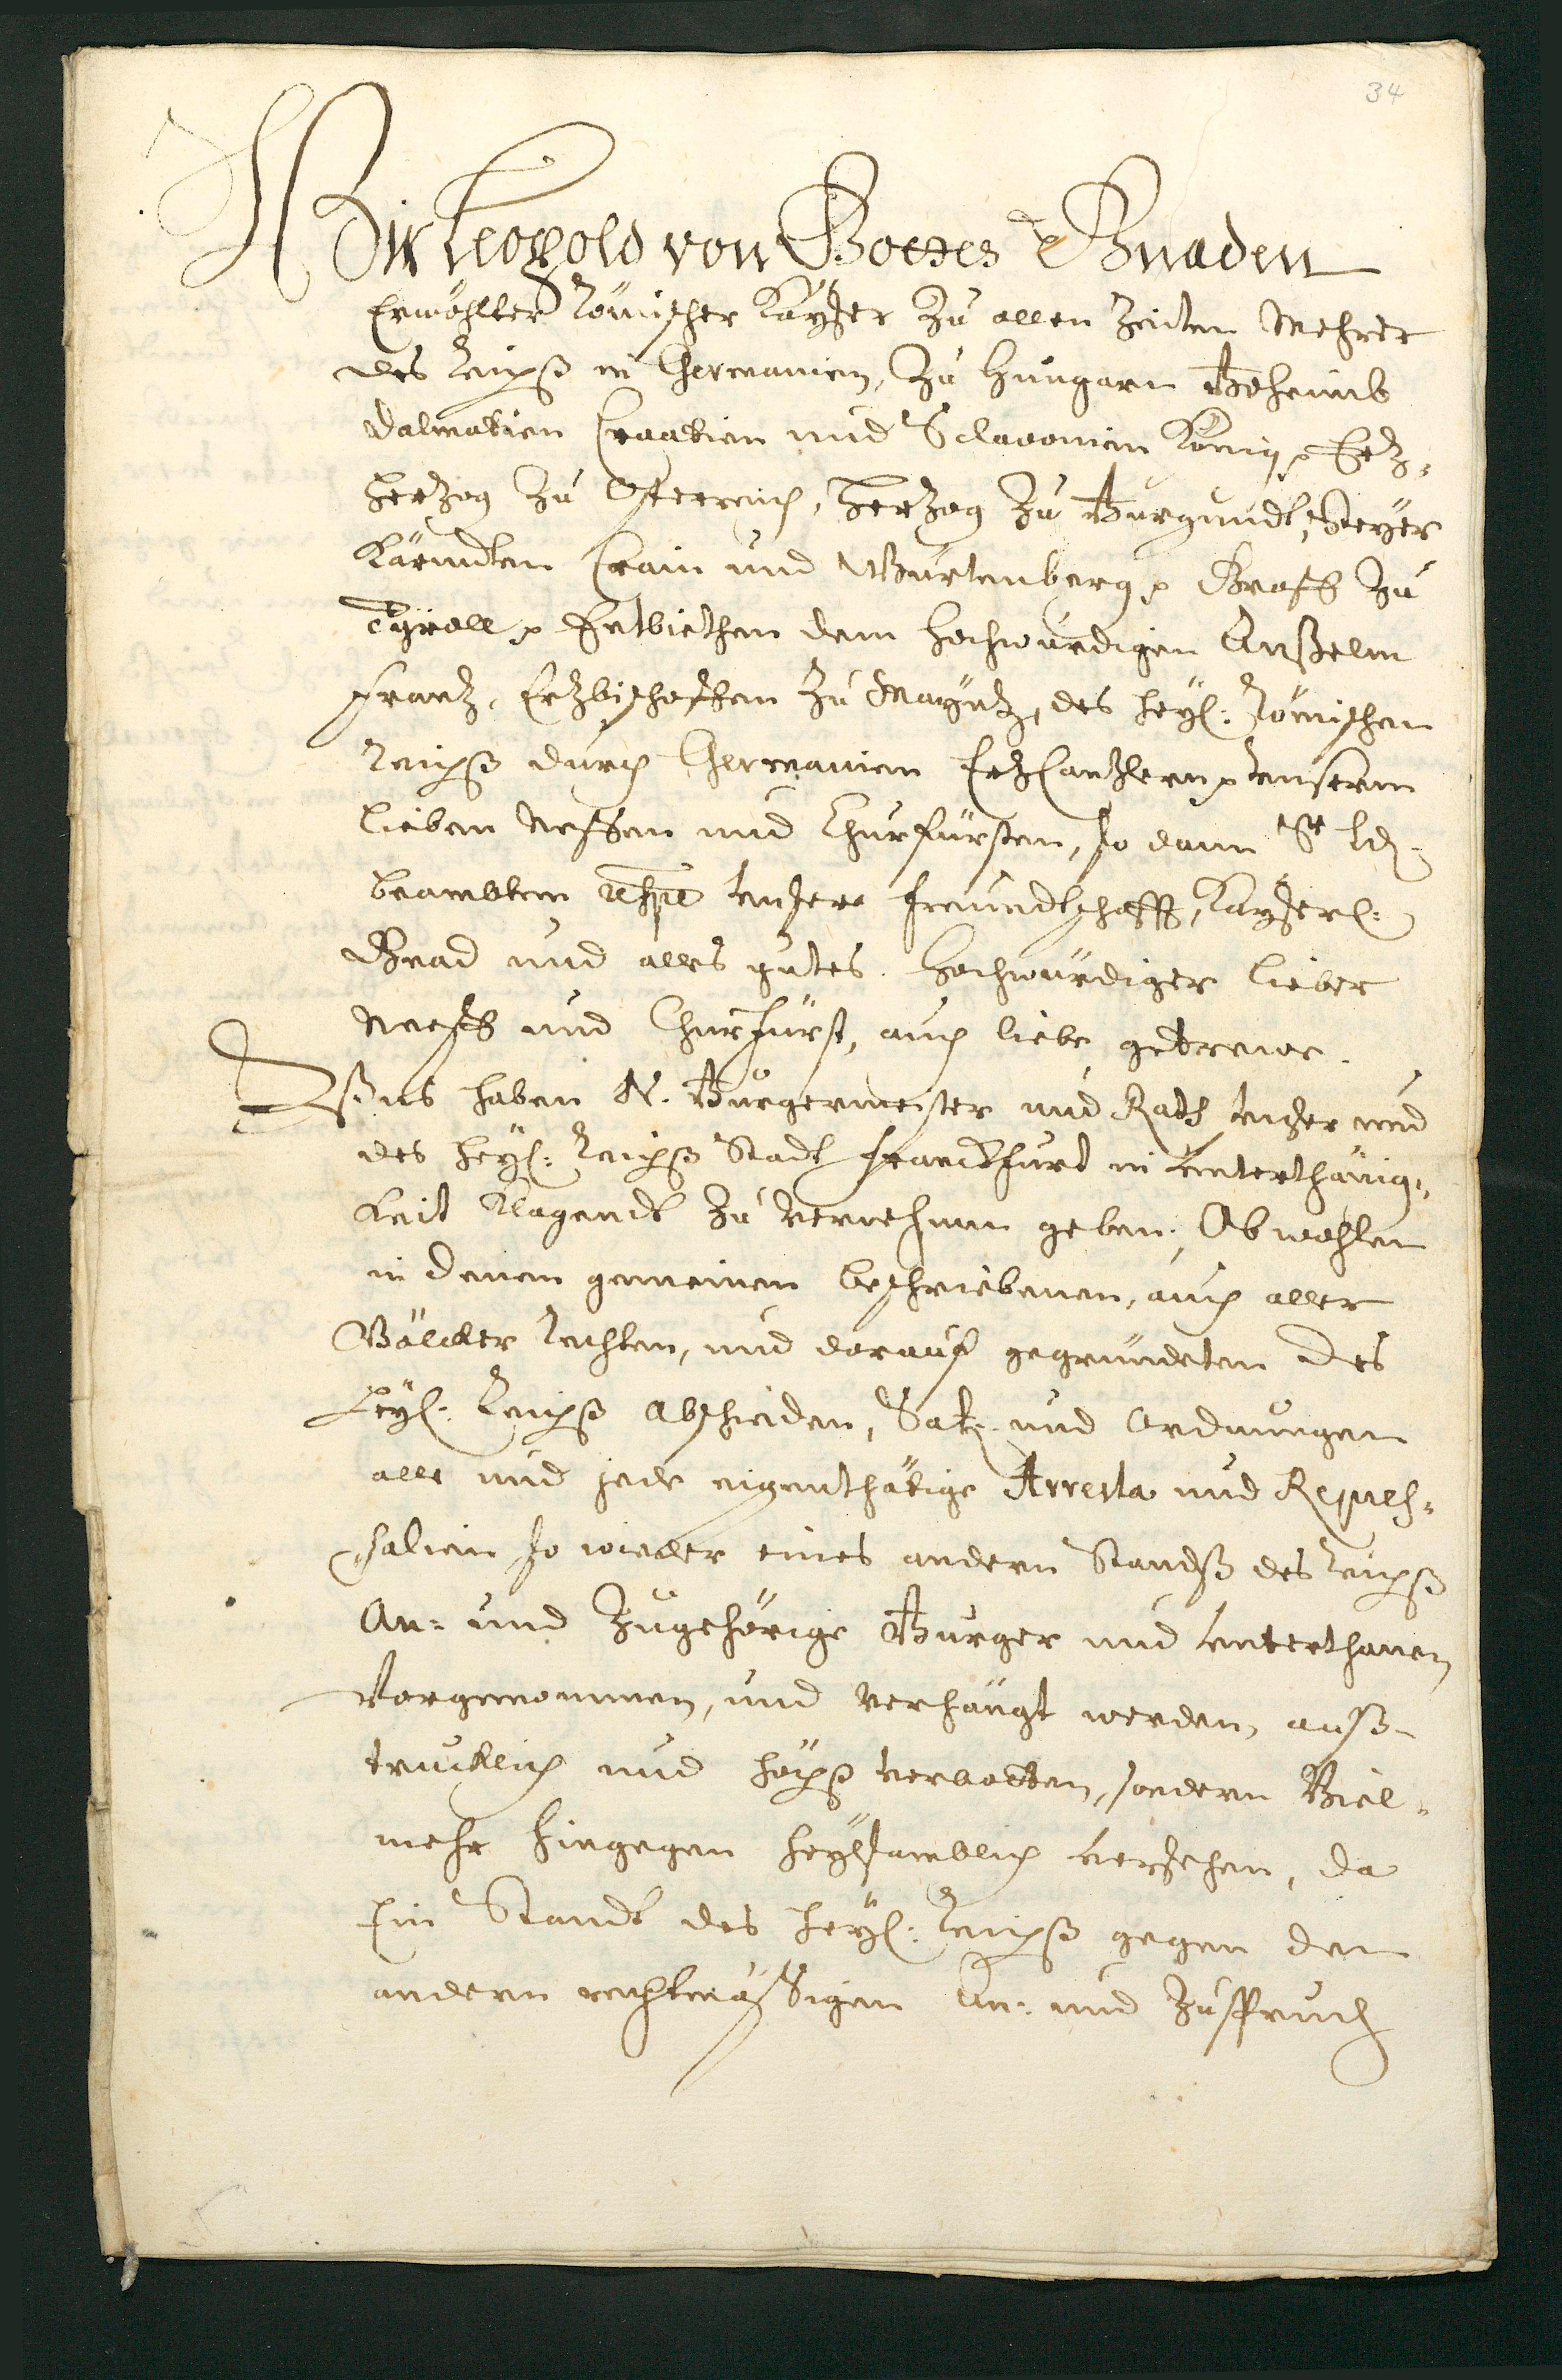 34
Wir Leopold von Gottes Gnaden
Erwöhlter Römischer Kayser zu allen Zeiten Mehrer
des Reichß in Germanien, zu Hungarn Böheimb
Dalmatien Croatien und Sclavonien König p Ertz-
Hertzog zu Österreich, Hertzog zu Burgundt, Steyer
Kärndten Crain und Würtenberg p Graff zu
Tyroll p Entbiethen dem Hochwürdigen Anßelm
Frantz, Ertzbischoffen zu Mayntz, des Heyl: Römischen
Reichß durch Germanien ErtzCantzlern p Unserm
lieben Neffen und Churfürsten, so dann Sr Ld:
beambten Unsere freundtschafft, Kayserl:
Gnad und alles gutes. Hochwürdiger lieber
Neeff und Churfürst, auch liebe getrewe.
Unß haben N. Bürgermeister und Rath Unser und
des Heyl: Reichß Stadt Franckfurt in Unterthänig-
keit klagendt zu vernehmen geben, Obwohlen
in denen gemeinen beschriebenen, auch aller
Völcker Rechten, und darauf gegründeten des
Heyl: Reichß Abschieden, Satz- und Ordnungen
alle und jede eigenthätige Arresta und Repres-
salien so wieder eines andern Standß des Reichß
An- und Zugehörige Bürger und Unterthanen
Vorgenommen, und verhängt werden, auß-
trucklich und höchß verbotten, sondern Viel-
mehr hingegen heylsamblich versehen, da
Ein Standt des Heyl: Reichß gegen den
andern rechtmässigen An- und Zuspruch